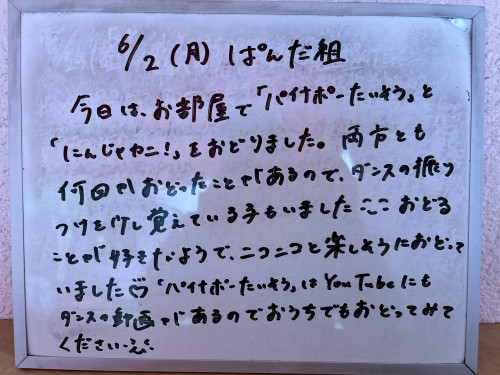 6/2(月) ぱんだ組
今日は、お部屋で「パイナポーたいそう」と
「にんじゃやー!」をおどりました。両方とも
何回かおどったことがあるので、ダンスの振り
つけを少し覚えている子もいました おどる
ことが好きなようで、ニコニコと楽しそうにおどって
いました♡ 「パイナポーたいそう」は YouTubeにも
ダンスの動画があるのでおうちでもおどってみて
ください